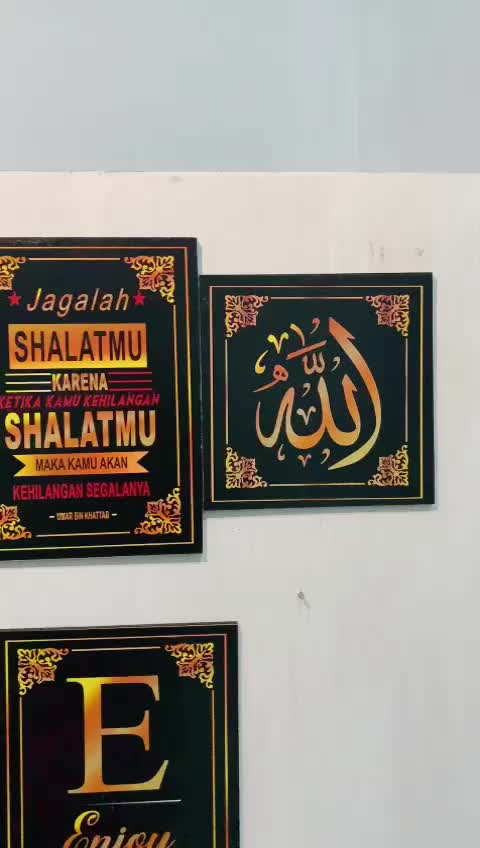 Jagalah
SHALATMU
KARENA
KETIKA KAMU KEHILANGAN
SHALATMU
MAKA KAMU AKAN
KEHILANGAN SEGALANYA
– UMAR BIN KHATTAB –
اللّٰه
E
Enjoy